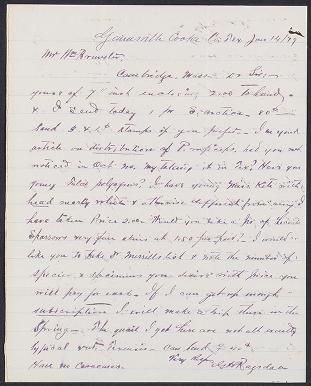 Gainesville Cooke Co. Tex. Jan 14/79
Mr Wm Brewster,
Cambridge, Mass. Dr Sir,
yours of 7" inst enclosing 2.00 to hand,
& I send today 1 pr
send 3 & c stamps if you prefer. I in your
article on distribution of P. did you not
noticed in Oct. no. my taking it in Tex? Have you
young polyagrus? I have young Miss. Kite with
head nearly white & otherwise different from any I
have taken Price 2.00. Would you like a pr of
Sparrows very fine skins at 1.50 per pair? I would
like you to take Merrills list & note the number of
species & specimens you desire with price you
will pay for each. If I can get up enough
subscriptions I will make a trip there in the
Spring. The quail I get here are not all exactly
typical can send
Very Resp. G H Ragsdale
Have no